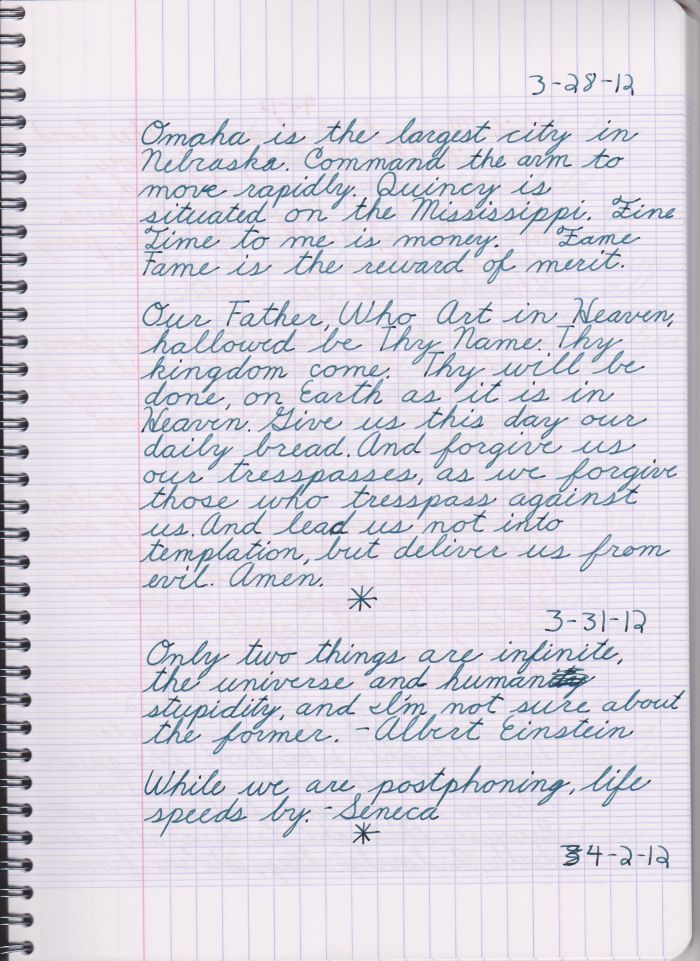 3-28-12
Omaha is the largest city in
Nebraska. Command the arm to
move rapidly. Quincy is
situated on the Mississippi. Fine
Time to me is money. Fame
Fame is the reward of merit.
Our Father, Who Art in Heaven,
hallowed be Thy Name. Thy
kingdom come. Thy will be
done, on Earth as it is in
Heaven. Give us this day our
daily bread. And forgive us
our tresspasses, as we forgive
those who tresspass against
us. And lead us not into
templation, but deliver us from
evil. Amen.
*
3-31-12
Only two things are infinite,
the universe and human
stupidity, and I'm not sure about
the former. -Albert Einstein
While we are postphoning, life
speeds by. -Seneca
*
4-2-12